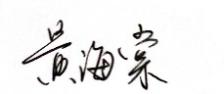 黄海棠